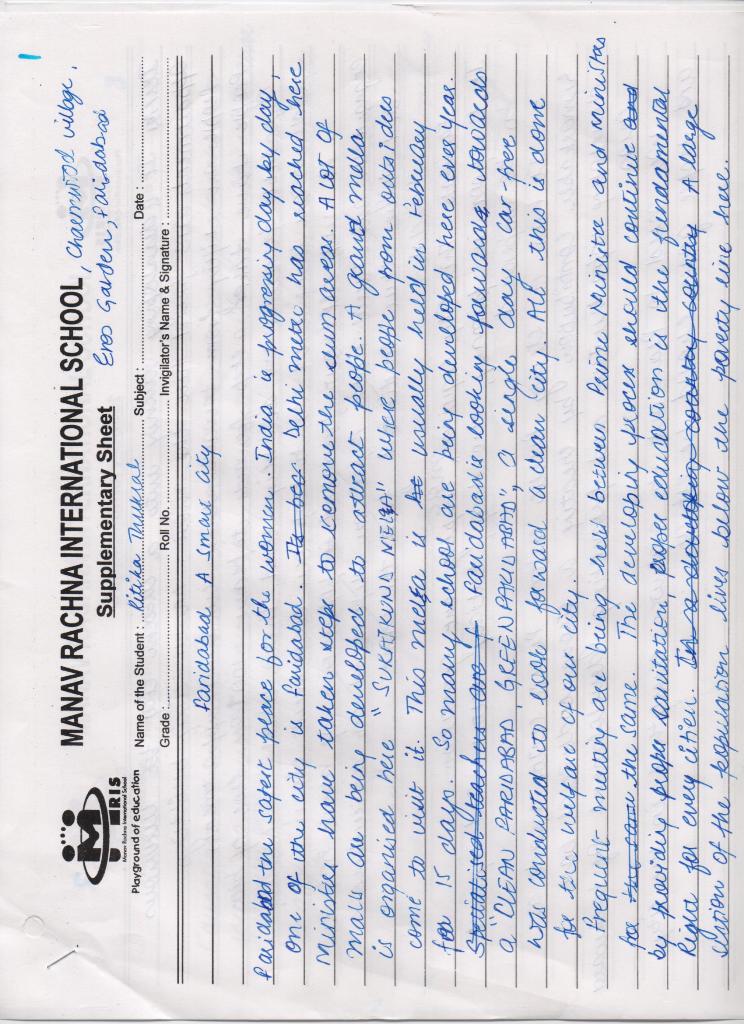 MANAV RACHNA INTERNATIONAL SCHOOL, Charmwood village,
Eros Garden, Faridabad
Supplementary Sheet
MRIS
Manav Rachna International School
Playground of education
Name of the Student : Ritika Thukral Subject : Date :
Grade : Roll No. Invigilator's Name & Signature :
Faridabad A Smart City
Faridabad the safest peace for the women. India is progressing day by day,
one of the city is Faridabad. Its bec Delhi metro has reached here
Minister have taken steps to remove the slum areas. A lot of
mals are being developed to attract people. A grand mella
is organised here "SURAJKUND MELA" where people from outsiders
come to visit it. This mela is usually held in February
for 15 days. So many school are being developed here ever year.
Specialised teachers are f Faridabad is looking forwards towards
a "CLEAN FARIDABAD, GREEN FARIDABAD", a single day car-free
was conducted to look forward a clean city. All this is done
for the welfare of our city.
Frequent meeting are being held between Prime Minister and ministers
for the same. The developing process should continue and
by providing proper sanitation, proper education is the fundamental
Right for every citizen. In a developing country country A large
section of the population lives below the poverty line here.